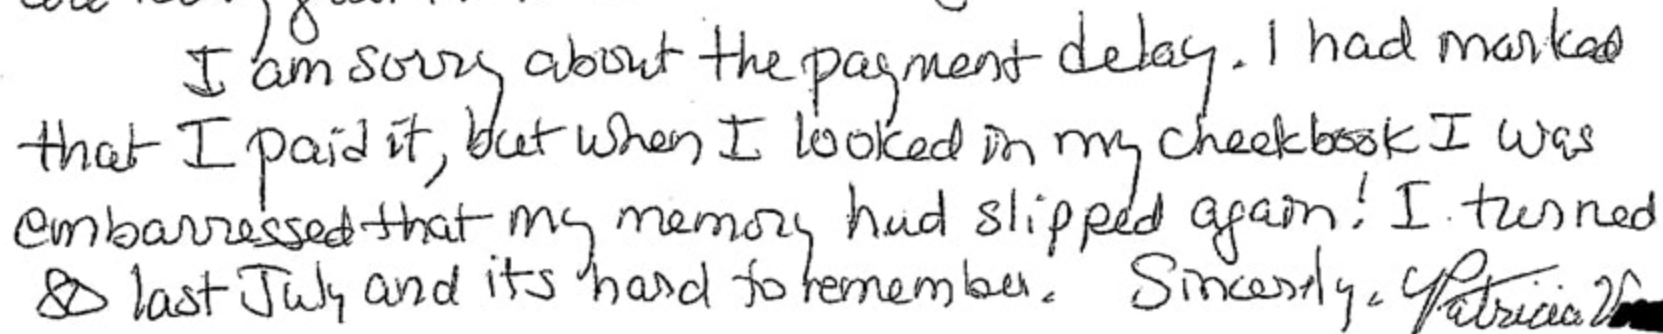 I am sorry about the payment delay. I had marked
that I paid it, but when I looked in my checkbook I was
embarressed that my memory had slipped again! I turned
80 last July and its hard to remember. Sincerely, Patricia